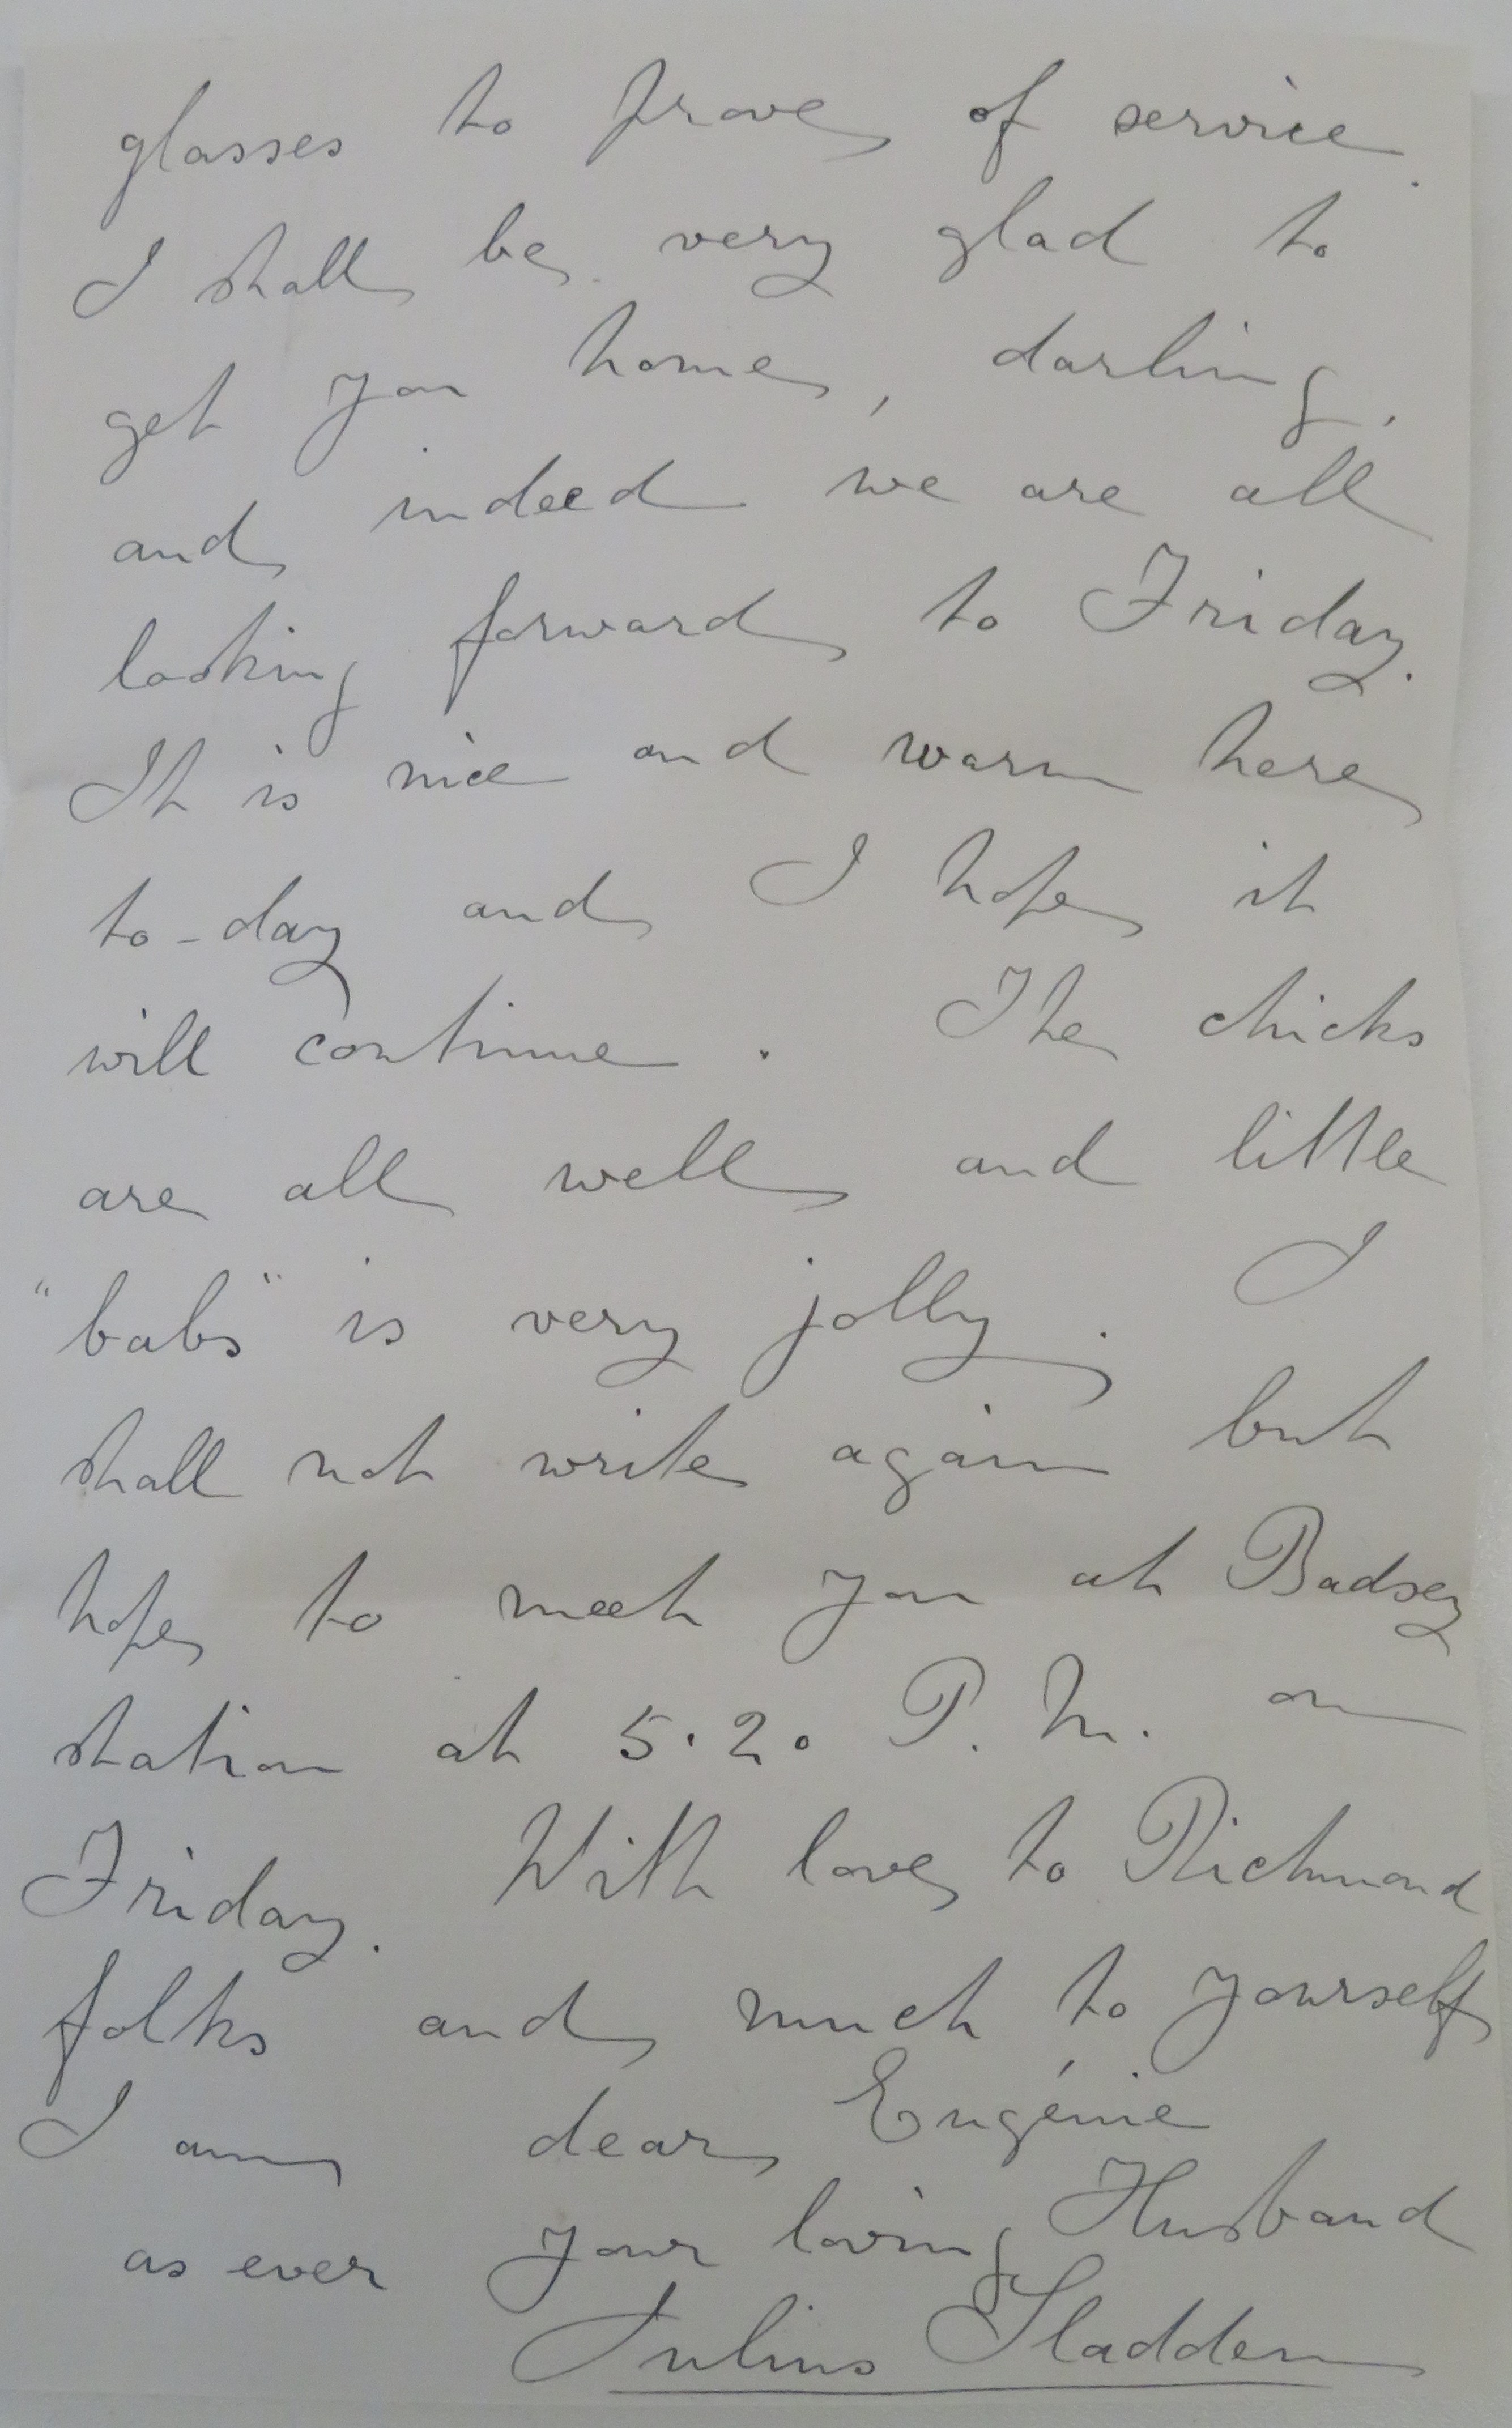 glasses to prove of service.
I shall be very glad to
get you home, darling,
and indeed we are all
looking forward to Friday.
It is nice and warm here
to-day and I hope it
will continue. The chicks
are all well and little
"babs" is very jolly. I
shall not write again but
hope to meet you at Badsey
station at 5.20 P.M. on
Friday. With love to Richmond
folks and much to yourself
I am dear Eugénie
as ever your loving Husband
Julius Sladden